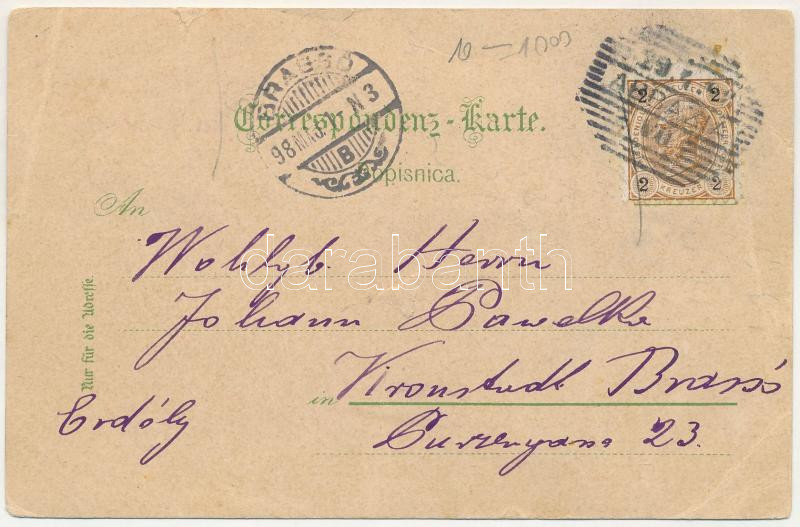 10–1000
BRASSÓ
98 MÁJ. N3
B
2 KREUZER 2
2 KREUZER 2
Correspondenz-Karte.
Dopisnica.
An
Wohlgb. Herrn
darabanth
Johann Pawelka
Nur für die Adresse
in Kronstadt Brassó
Erdély
Purzengasse 23.